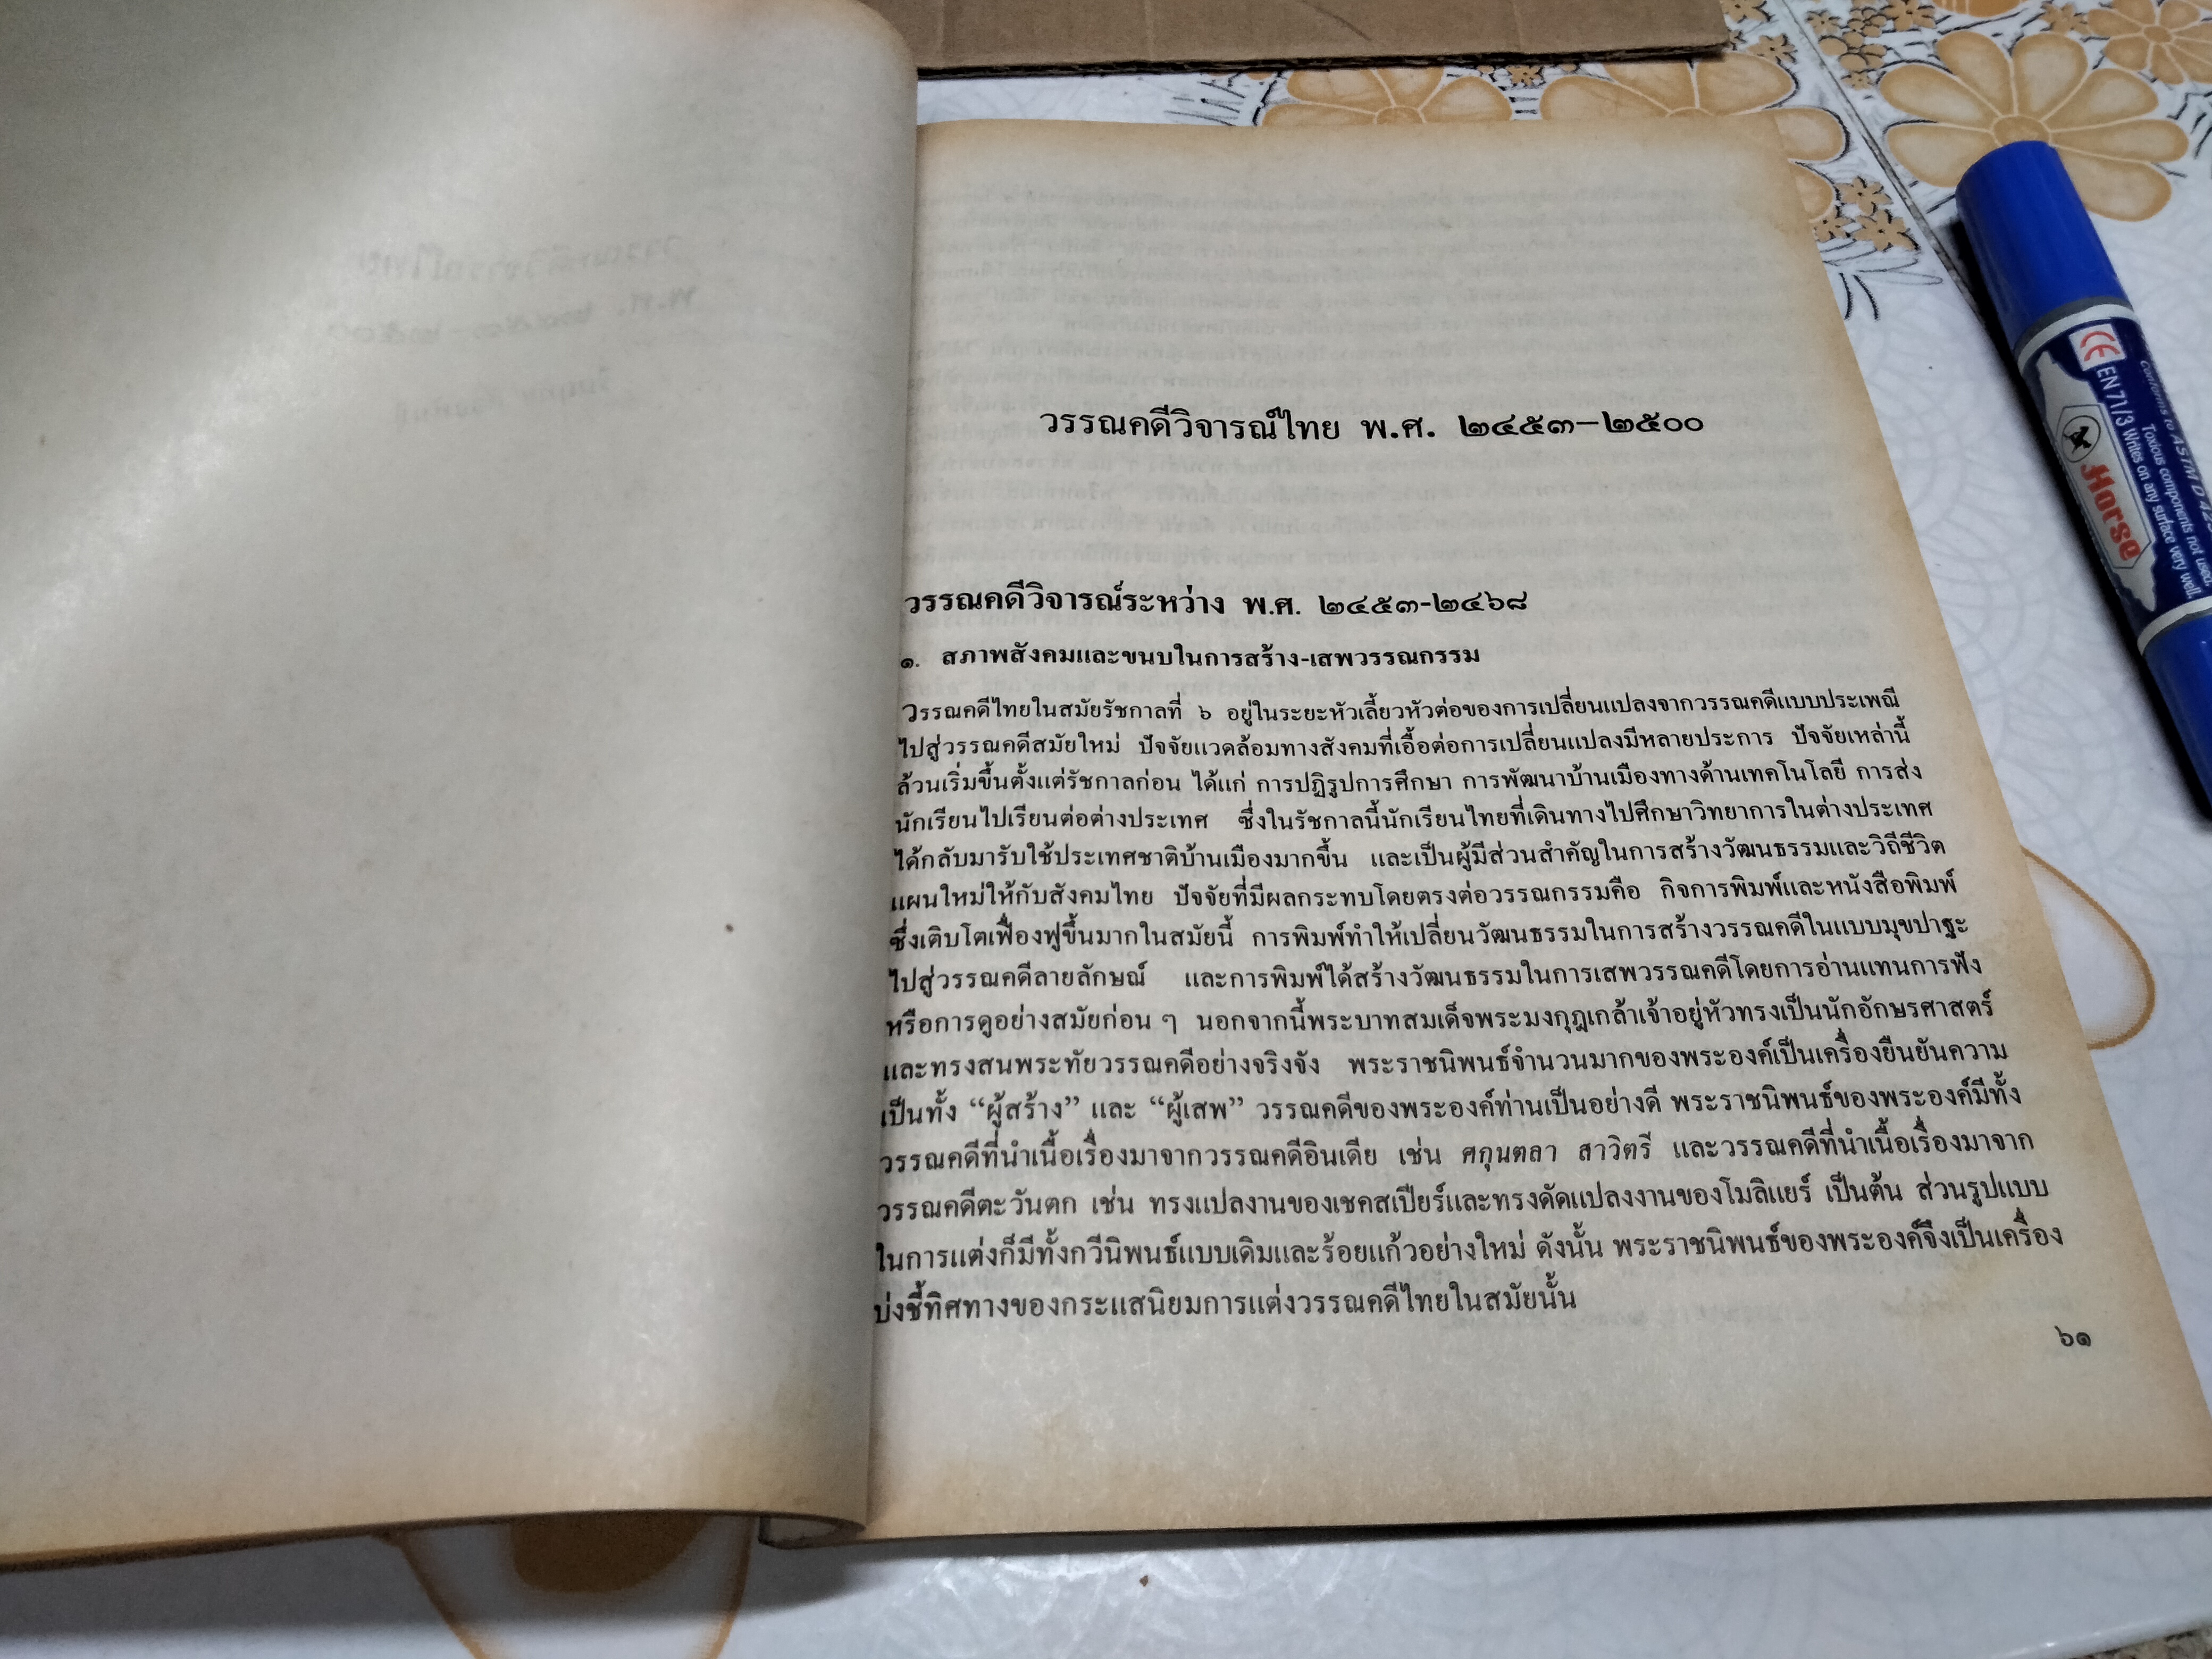 วรรณคดีวิจารณ์ไทย พ.ศ. ๒๔๕๓–๒๕๐๐
วรรณคดีวิจารณ์ระหว่าง พ.ศ. ๒๔๕๓-๒๔๖๘
๑. สภาพสังคมและขนบในการสร้าง-เสพวรรณกรรม
วรรณคดีไทยในสมัยรัชกาลที่ ๖ อยู่ในระยะหัวเลี้ยวหัวต่อของการเปลี่ยนแปลงจากวรรณคดีแบบประเพณี
ไปสู่วรรณคดีสมัยใหม่ ปัจจัยแวดล้อมทางสังคมที่เอื้อต่อการเปลี่ยนแปลงมีหลายประการ ปัจจัยเหล่านี้
ล้วนเริ่มขึ้นตั้งแต่รัชกาลก่อน ได้แก่ การปฏิรูปการศึกษา การพัฒนาบ้านเมืองทางด้านเทคโนโลยี การส่ง
นักเรียนไปเรียนต่อต่างประเทศ ซึ่งในรัชกาลนี้นักเรียนไทยที่เดินทางไปศึกษาวิทยาการในต่างประเทศ
ได้กลับมารับใช้ประเทศชาติบ้านเมืองมากขึ้น และเป็นผู้มีส่วนสำคัญในการสร้างวัฒนธรรมและวิถีชีวิต
แผนใหม่ให้กับสังคมไทย ปัจจัยที่มีผลกระทบโดยตรงต่อวรรณกรรมคือ กิจการพิมพ์และหนังสือพิมพ์
ซึ่งเติบโตเฟื่องฟูขึ้นมากในสมัยนี้ การพิมพ์ทำให้เปลี่ยนวัฒนธรรมในการสร้างวรรณคดีในแบบมุขปาฐะ
ไปสู่วรรณคดีลายลักษณ์ และการพิมพ์ได้สร้างวัฒนธรรมในการเสพวรรณคดีโดยการอ่านแทนการฟัง
หรือการดูอย่างสมัยก่อน ๆ นอกจากนี้พระบาทสมเด็จพระมงกุฎเกล้าเจ้าอยู่หัวทรงเป็นนักอักษรศาสตร์
และทรงสนพระทัยวรรณคดีอย่างจริงจัง พระราชนิพนธ์จำนวนมากของพระองค์เป็นเครื่องยืนยันความ
เป็นทั้ง “ผู้สร้าง” และ “ผู้เสพ” วรรณคดีของพระองค์ท่านเป็นอย่างดี พระราชนิพนธ์ของพระองค์มีทั้ง
วรรณคดีที่นำเนื้อเรื่องมาจากวรรณคดีอินเดีย เช่น ศกุนตลา สาวิตรี และวรรณคดีที่นำเนื้อเรื่องมาจาก
วรรณคดีตะวันตก เช่น ทรงแปลงานของเชคสเปียร์และทรงดัดแปลงงานของโมลิแยร์ เป็นต้น ส่วนรูปแบบ
ในการแต่งก็มีทั้งกวีนิพนธ์แบบเดิมและร้อยแก้วอย่างใหม่ ดังนั้น พระราชนิพนธ์ของพระองค์จึงเป็นเครื่อง
บ่งชี้ทิศทางของกระแสนิยมการแต่งวรรณคดีไทยในสมัยนั้น
๖๑
CE EN 71/3
Conforms to ASTM D
Toxious components not used.
Writes on any surface very well.
Horse